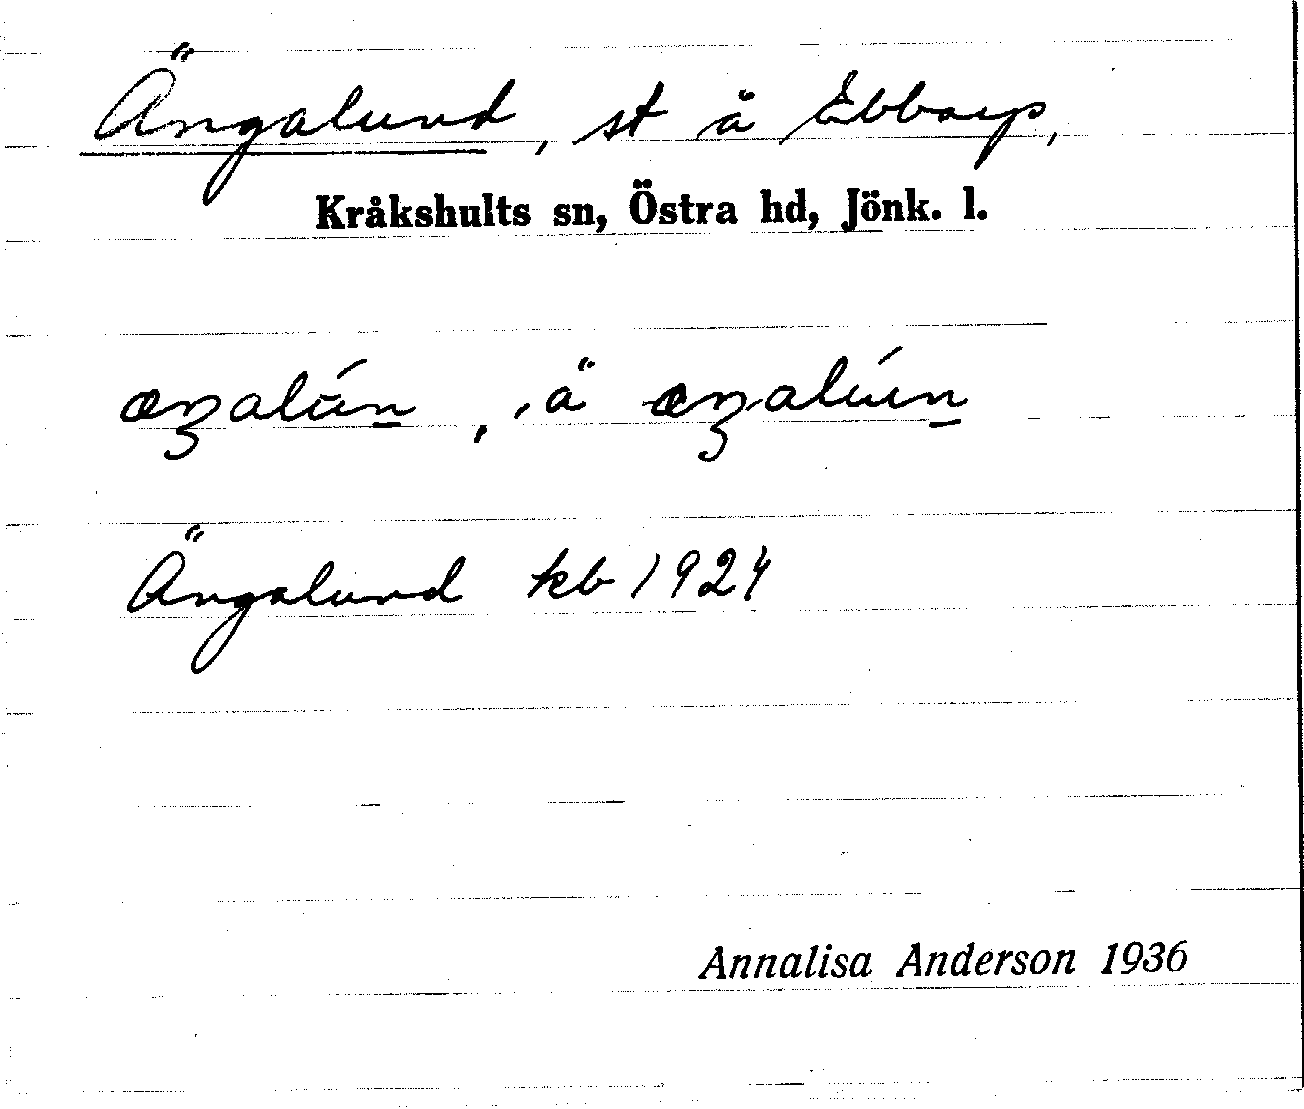 Ängalund, st å Ebbarp,
Kråkshults sn, Östra hd, Jönk. l.
æŋalún, å æŋalún
Ängalund kb 1924
Annalisa Anderson 1936